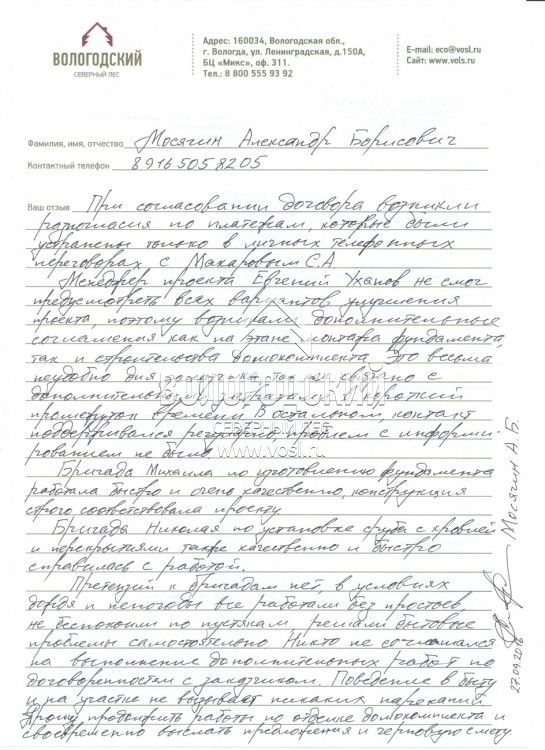 ВОЛОГОДСКИЙ
СЕВЕРНЫЙ ЛЕС
Адрес: 160034, Вологодская обл.,
г. Вологда, ул. Ленинградская, д.150А,
БЦ «Микс», оф. 311.
Тел.: 8 800 555 93 92
E-mail: eco@vosl.ru
Сайт: www.vols.ru
Фамилия, имя, отчество Мосягин Александр Борисович
Контактный телефон 89165058205
Ваш отзыв При согласовании договора возникли
разногласия по платежам, которые были
устранены только в личных телефонных
переговорах с Макаровым С.А
Менеджер проекта Евгений Ухапов не смог
предусмотреть всех вариантов улучшения
проекта, поэтому возникали дополнительные
соглашения как на этапе монтажа фундамента,
так и строительства домокомплекта. Это весьма
неудобно для заказчика, так как связано с
дополнительными затратами в короткий
промежуток времени. В остальном, контакт
поддерживался регулярно, проблем с информи-
рованием не было.
Бригада Михаила по изготовлению фундамента
работала быстро и очень качественно, конструкция
строго соответствовала проекту
Бригада Николая по установке сруба с кровлей
и перекрытиями также качественно и быстро
справилась с работой.
Претензий к бригадам нет, в условиях
дождя и непогоды все работали без простоев,
не беспокоили по пустякам, решали бытовые
проблемы самостоятельно. Никто не соглашался
на выполнение дополнительных работ по
договоренностям с заказчиком. Поведение в быту
и на участке не вызывает никаких нареканий
Прошу продолжить работы по отделке домокомплекта и
своевременно выслать предложения и черновую смету.
Мосягин А.Б.
27.09.2016
ВОЛОГОДСКИЙ
СЕВЕРНЫЙ ЛЕС
www.vosl.ru